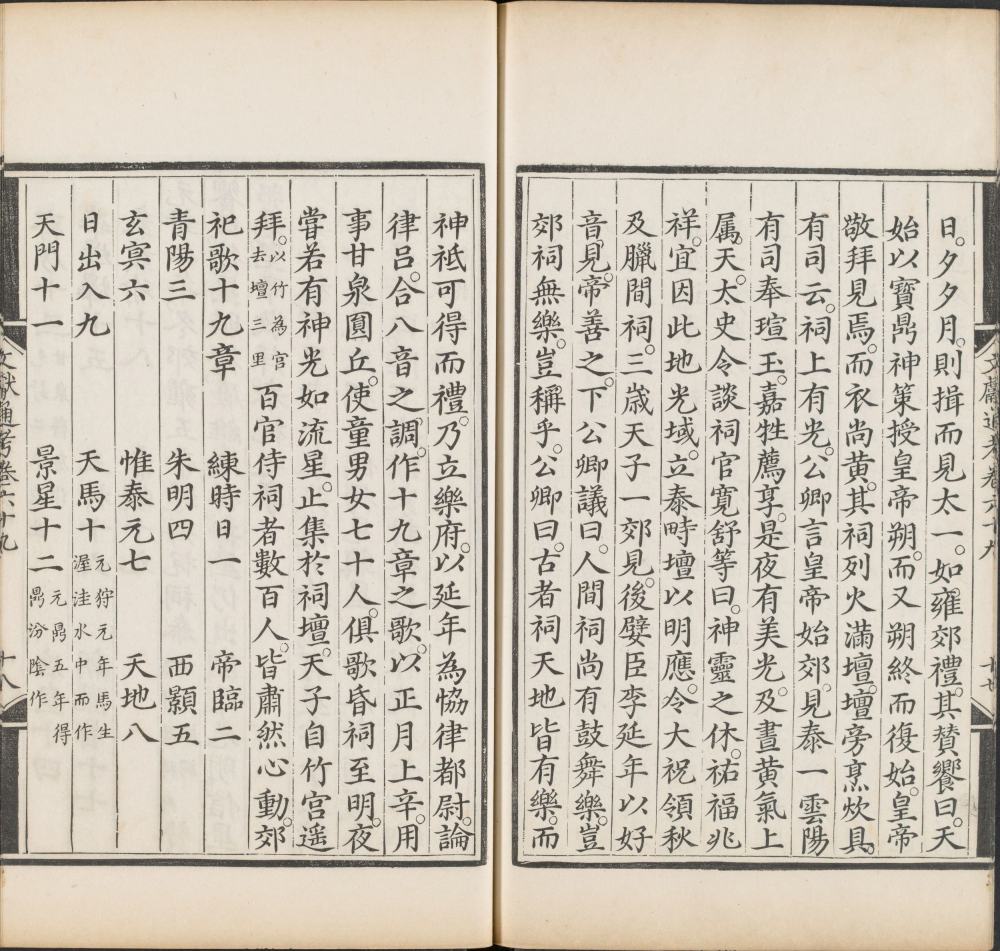 日。夕夕月。則揖而見太一。如雍郊禮。其贊饗曰。天
始以寶鼎神策授皇帝朔。而又朔終而復始。皇帝
敬拜見焉。而衣尚黃。其祠列火滿壇。壇旁烹炊具。
有司云。祠上有光。公卿言皇帝始郊。見泰一雲陽
有司奉瑄玉。嘉牲薦享。是夜有美光。及晝黃氣上
属。天。太史令談祠官寬舒等曰。神靈之休。祐福兆
祥。宜因此地光域。立泰畤壇以明應。令大祝領秋
及臘間祠。三歲天子一郊見。後嬖臣李延年以好
音見。帝善之。下公卿議曰。人間祠尚有鼓舞樂。豈
郊祠無樂。豈稱乎。公卿曰。古者祠天地皆有樂。而
文獻通考卷六十九 十七
神祗可得而禮。乃立樂府。以延年為協律都尉。論
律呂。合八音之。調。作十九章之歌。以正月上辛。用
事甘泉圓丘。使童男女七十人。俱歌昏祠至明。夜
嘗若有神光如流星。止集於祠壇。天子自竹宮遥
拜。以竹為宮去壇三里百官侍祠者數百人。皆肅然心動。郊
祀歌十九章 練時日一 帝臨二
青陽三 朱明四 西顥五
玄冥六 惟泰元七 天地八
日出入九 天馬十元狩元年馬生渥洼水中而作
天門十一 景星十二元鼎五年得鼎汾陰作
文獻通考卷六十九 十八